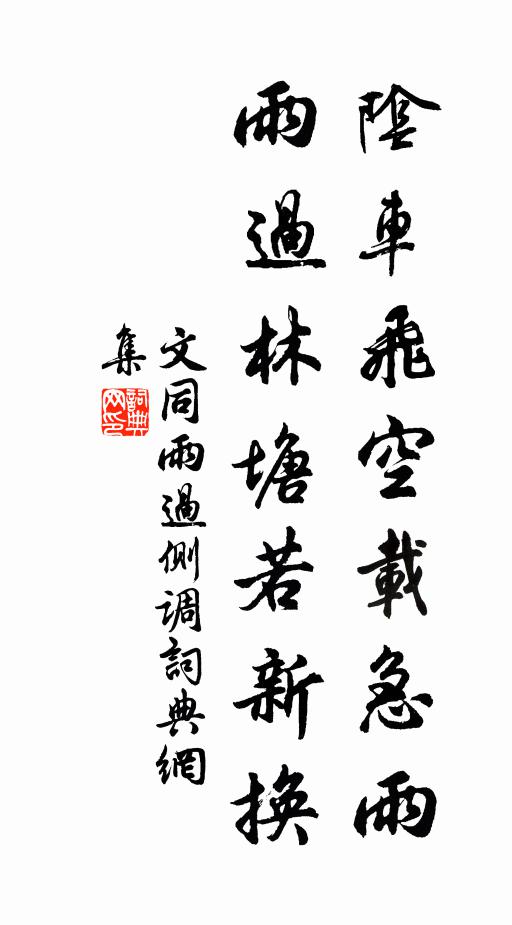 陰車飛空載急雨
雨過林塘若新換
文同雨過侧调詞典網
集
詞典
网印